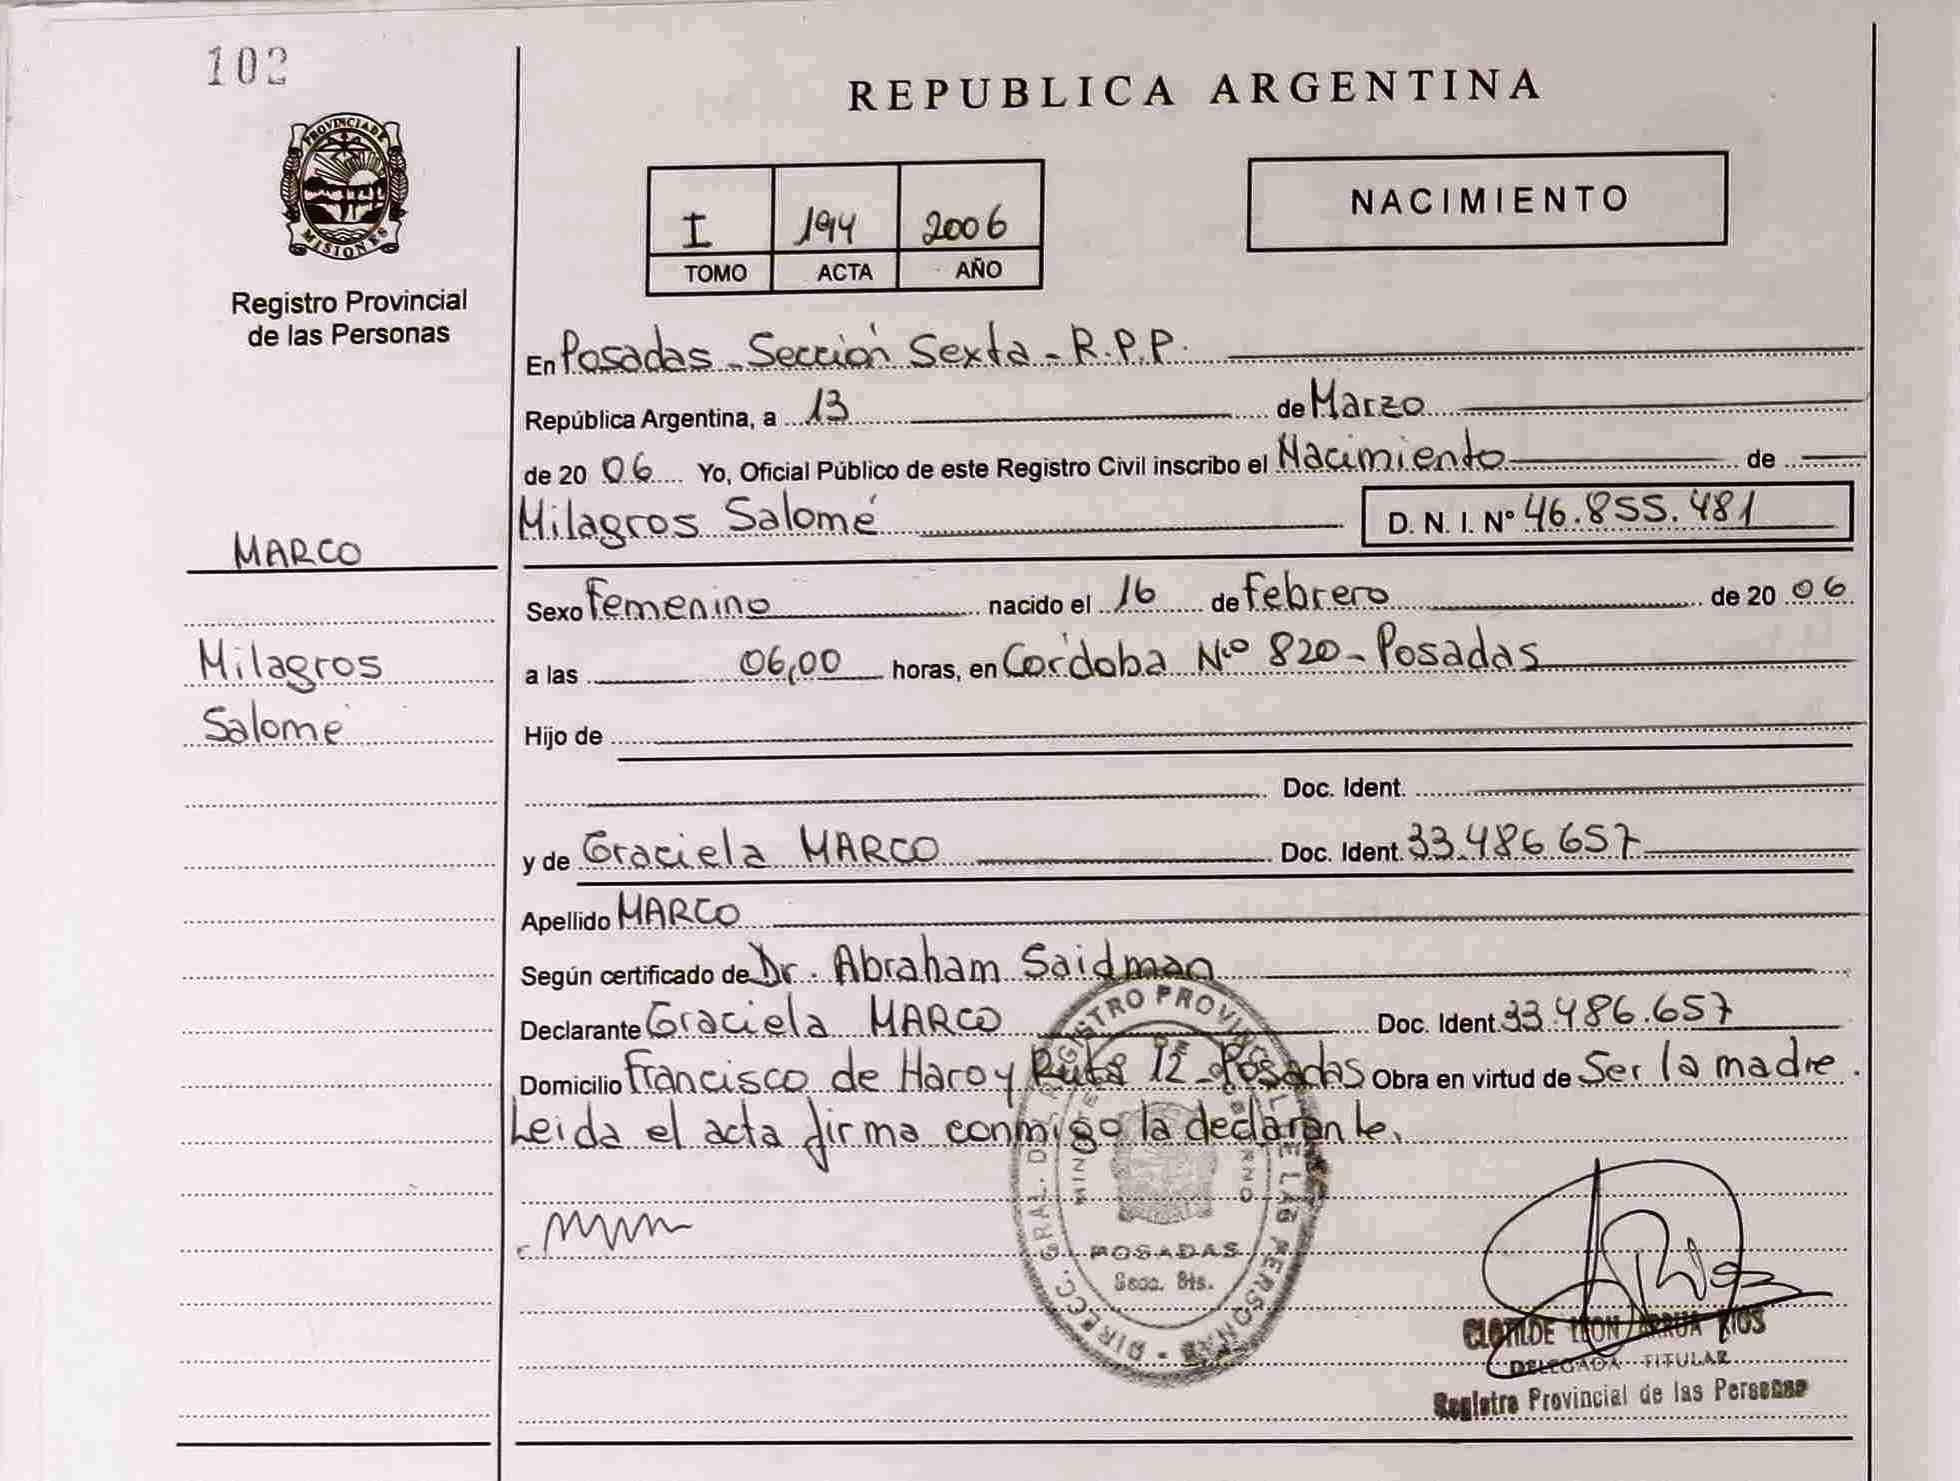 102
REPUBLICA ARGENTINA
PROVINCIA DE
MISIONES
Registro Provincial
de las Personas
I 194 2006
TOMO ACTA AÑO
NACIMIENTO
En Posadas - Sección Sexta - R.P.P.
República Argentina, a 13 de Marzo
de 20 06 Yo, Oficial Público de este Registro Civil inscribo el Nacimiento de
Milagros Salomé D. N. I. N° 46.855.481
MARCO
Sexo Femenino nacido el 16 de febrero de 20 06
Milagros
a las 06,00 horas, en Córdoba Nº 820 - Posadas
Salomé
Hijo de
Doc. Ident.
y de Graciela MARCO Doc. Ident. 33.486.657
Apellido MARCO
Según certificado de Dr. Abraham Saidman
Declarante Graciela MARCO Doc. Ident. 33.486.657
Domicilio Francisco de Haro y Ruta 12 - Posadas Obra en virtud de Ser la madre.
Leida el acta firma conmigo la declarante.
DIRECC. GRAL. DEL REGISTRO PROVINCIAL DE LAS PERSONAS
POSADAS
Secc. 6ta.
CLOTILDE LEON ARRUA RIOS
DELEGADA TITULAR
Registro Provincial de las Personas